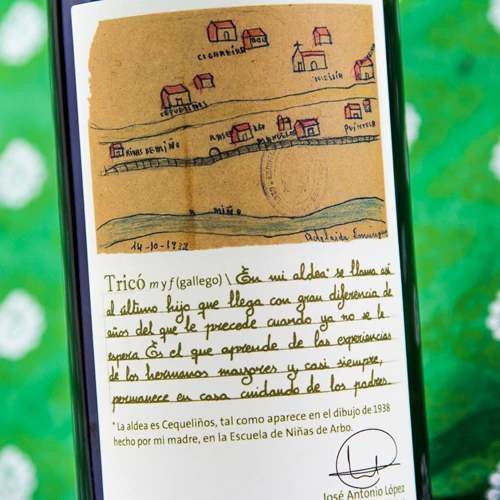 CIGARREIRA
IGLESIA
CEQUELIÑES
RIVAS DE MIÑO
PUINTEIA
R. MIÑO
14-10-1932
Adelaida
Tricó m y f (gallego) \ En mi aldea* se llama así
al último hijo que llega con gran diferencia de
años del que le precede cuando ya no se le
espera. Es el que aprende de las experiencias
de los hermanos mayores y, casi siempre,
permanece en casa cuidando de los padres.
*La aldea es Cequeliños, tal como aparece en el dibujo de 1938
hecho por mi madre, en la Escuela de Niñas de Arbo.
José Antonio López